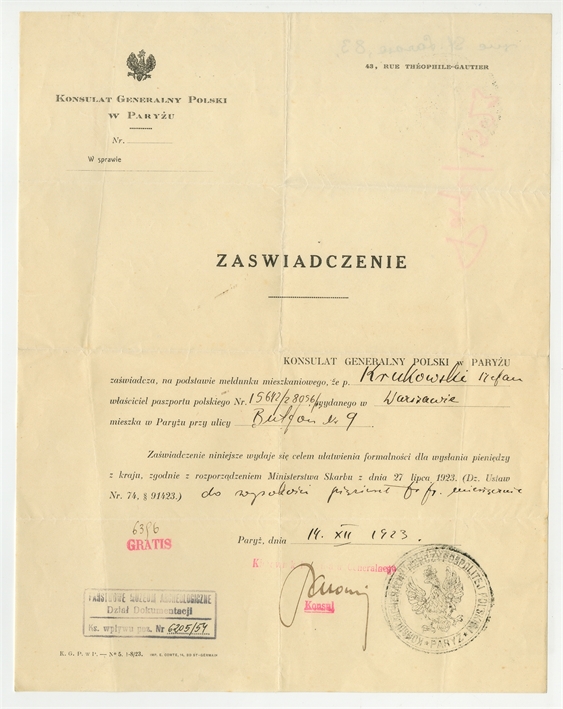 43, RUE THÉOPHILE-GAUTIER
KONSULAT GENERALNY POLSKI
W PARYŻU
Nr.
W sprawie
ZASWIADCZENIE
KONSULAT GENERALNY POLSKI w PARYŻU
zaświadcza, na podstawie meldunku mieszkaniowego, że p. Krukowski Stefan
właściciel paszportu polskiego Nr. 15642/28056/ wydanego w Warszawie
mieszka w Paryżu przy ulicy Buffon Nr 9
Zaświadczenie niniejsze wydaje się celem ułatwienia formalności dla wysłania pieniędzy
z kraju, zgodnie z rozporządzeniem Ministerstwa Skarbu z dnia 27 lipca 1923. (Dz. Ustaw
Nr. 74, § 91423.) do wysokości fr. fr. miesięcznie
6396
GRATIS
Paryż, dnia 14. XII 1923.
Generalnego
Konsul
PAŃSTWOWE MUZEUM ARCHEOLOGICZNE
Dział Dokumentacji
Ks. wpływu poz. Nr 6205/54
PARYŻ
K. G. P. w P. — Nº 5. 1-8/23.